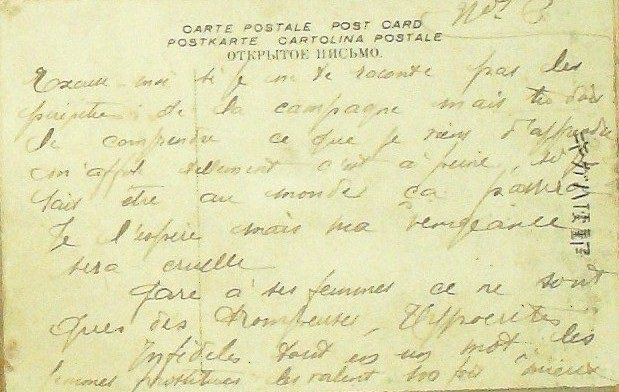 No. 3
CARTE POSTALE POST CARD
POSTKARTE CARTOLINA POSTALE
ОТКРЫТОЕ ПИСЬМО.
Excuse moi si je ne te raconte pas les
de la campagne mais tu dois
le comprendre ce que je viens d'apprendre
m'affol tellement c'est à peine si je
sais être au monde ça passera
Je l'espère mais ma vengeance
sera cruelle
Gare à ses femmes ce ne sont
ques des trompeuses, Hyppocrites
Infidèles tout en un mot les
femmes prostitues les valent 100 fois mieux